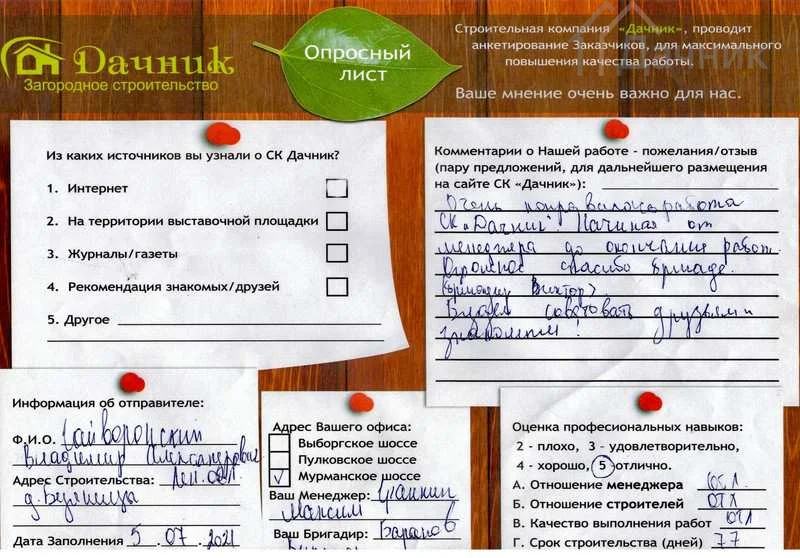 Дачник
Загородное строительство
Опросный
лист
Строительная компания «Дачник», проводит
анкетирование Заказчиков, для максимального
повышения качества работы.
Ваше мнение очень важно для нас.
Дачник
Из каких источников вы узнали о СК Дачник?
1. Интернет
2. На территории выставочной площадки
3. Журналы/газеты
4. Рекомендация знакомых/друзей
5. Другое
Комментарии о Нашей работе - пожелания/отзыв
(пару предложений, для дальнейшего размещения
на сайте СК «Дачник»):
Очень понравилась работа
СК „Дачник". Начиная от
менеджера до окончания работ.
Огромное спасибо бригаде.
Виктор
Будем советовать друзьям и
знакомым!
Информация об отправителе:
Ф.И.О. Гайворонский
Владимир Александрович
Адрес Строительства: Лен. обл.
д.
Дата Заполнения 5 .07 .2021
Адрес Вашего офиса:
Выборгское шоссе
Пулковское шоссе
Мурманское шоссе
Ваш Менеджер:
Максим
Ваш Бригадир: Баранов
Оценка профессиональных навыков:
2 - плохо, 3 - удовлетворительно,
4 - хорошо, 5 -отлично.
А. Отношение менеджера
Б. Отношение строителей ОТЛ
В. Качество выполнения работ ОТЛ
Г. Срок строительства (дней) 77